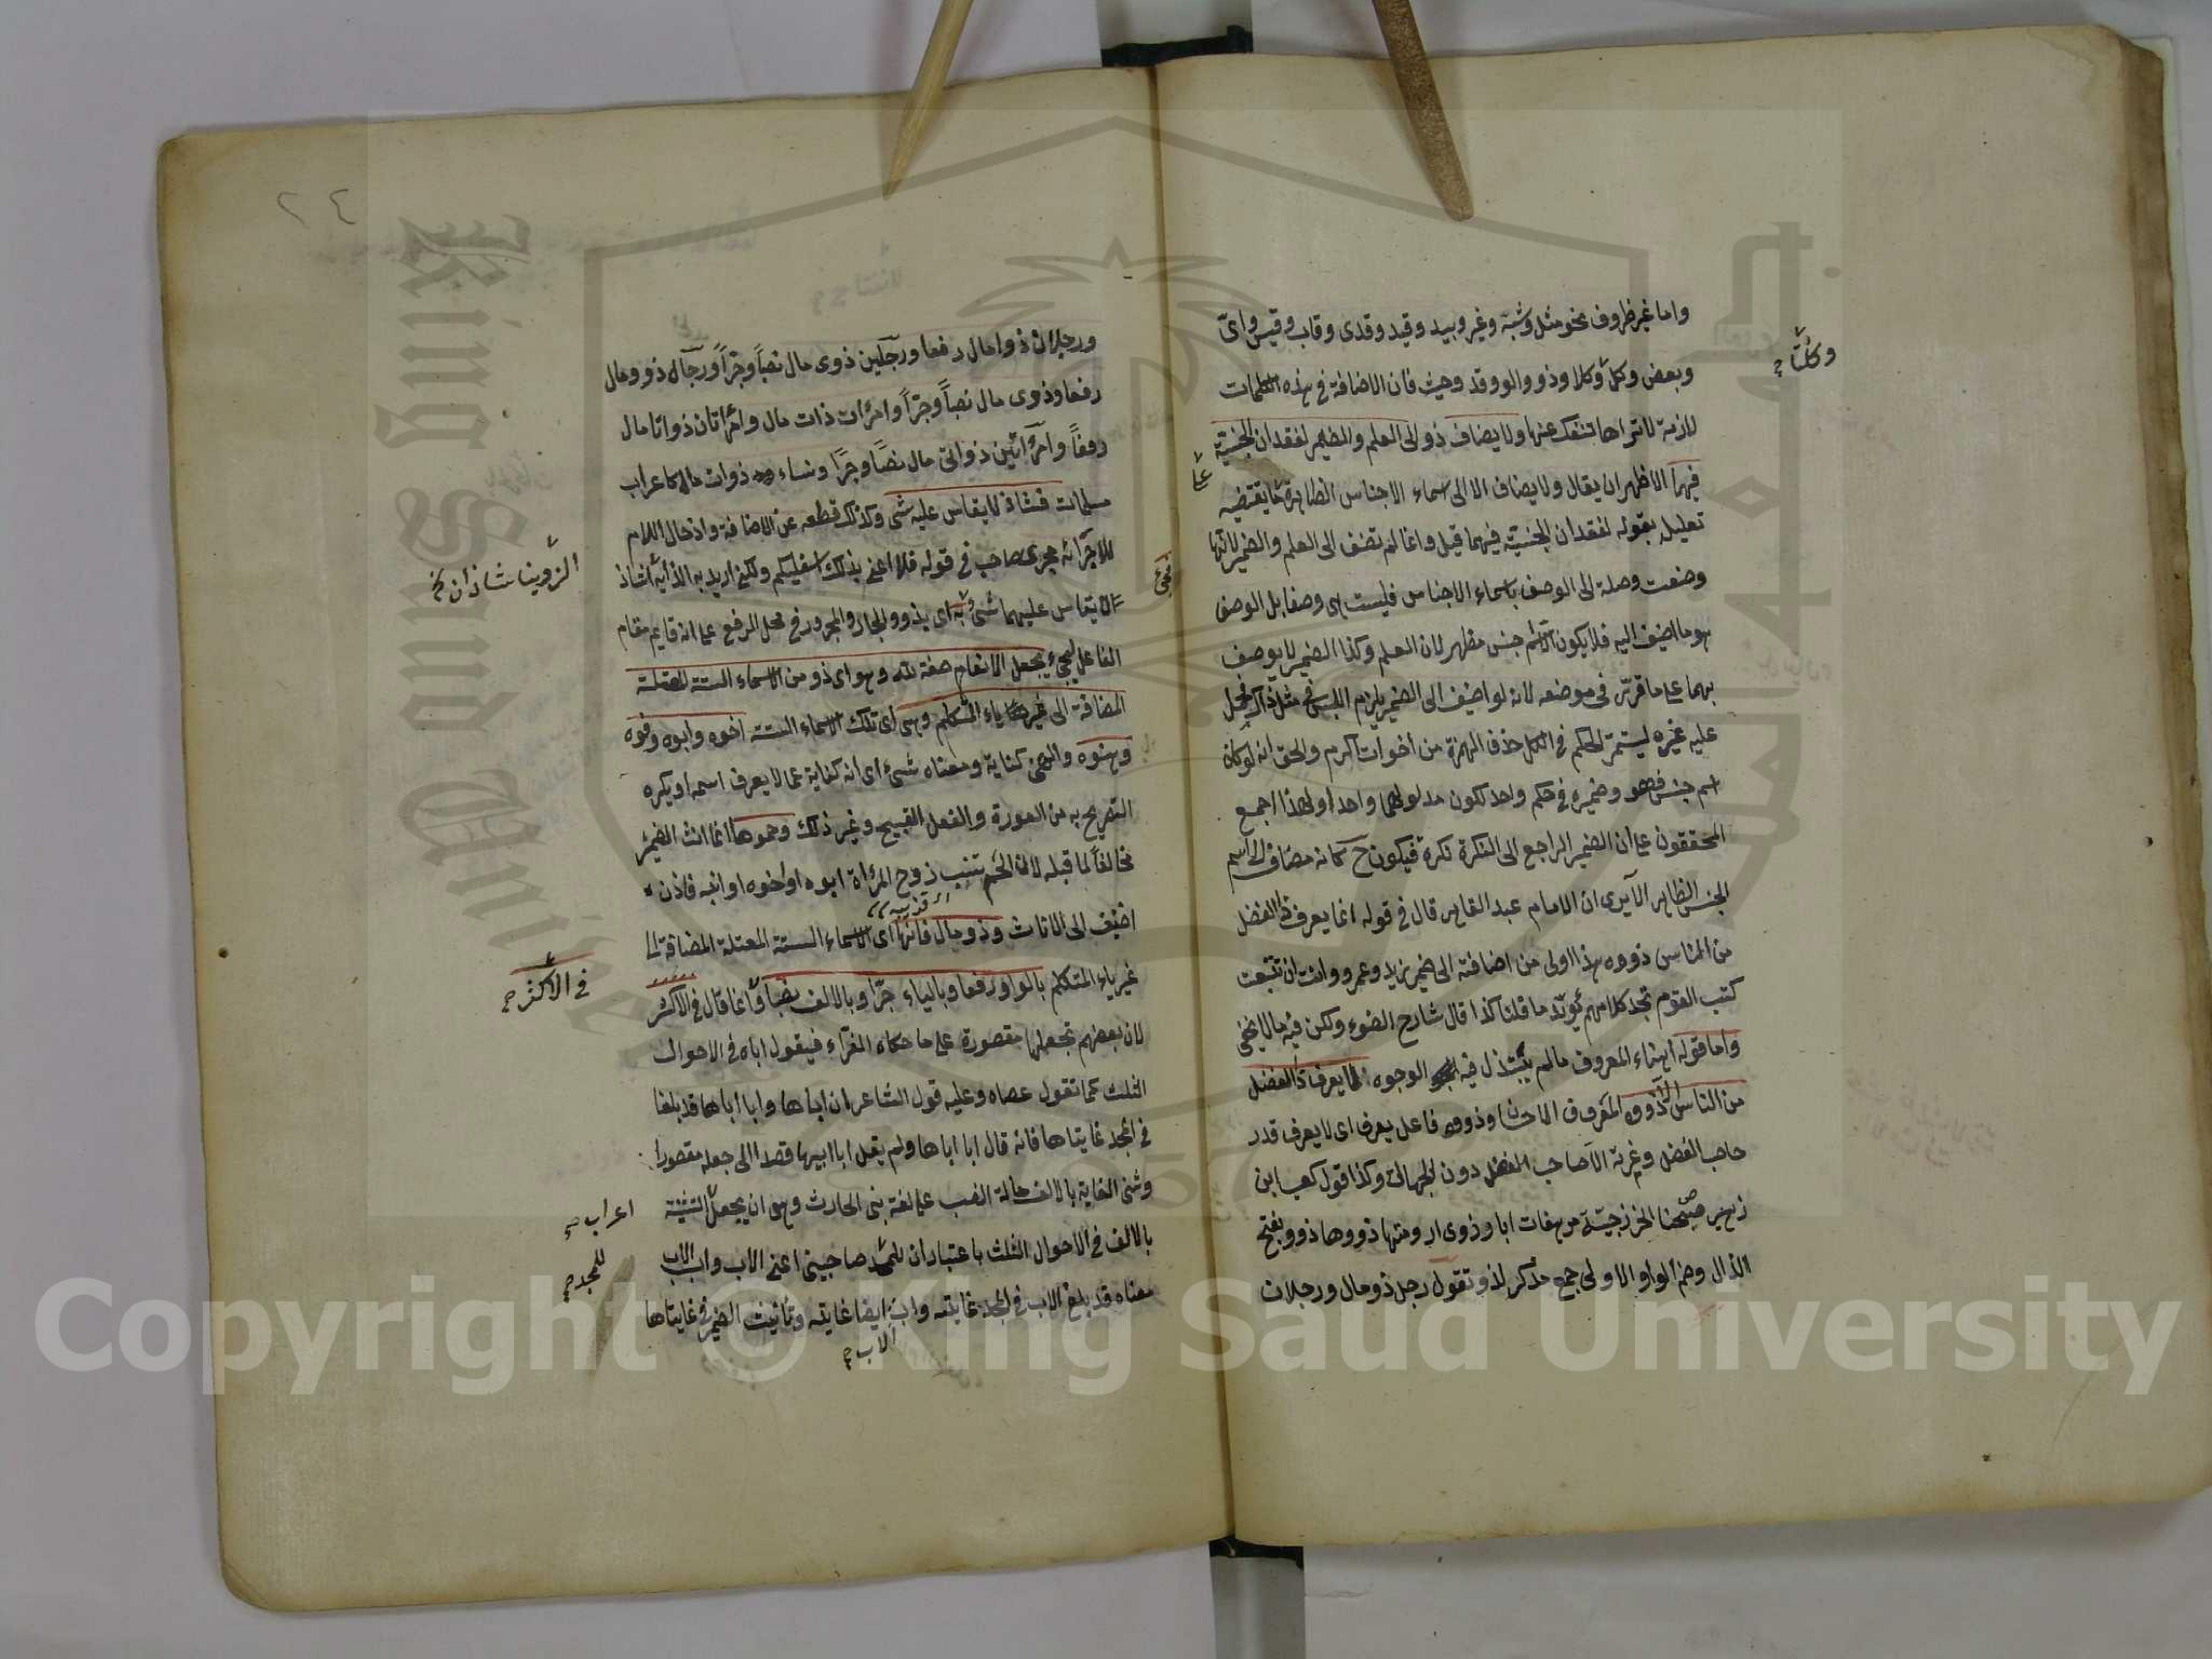 واما غير ظروف نحو مثل وشبه وغير وبيد وقيد وقدى وقاب وقيس واى
وبعض وكل وكلا وذو والو وقد وحيث فان الاضافة فى هذه الكلمات
لازمة لا تراها تنفك عنها ولا يضاف ذو الى العلم والمضمر لفقدان الجنسية
فيهما الاظهر ان يقال ولا يضاف الا الى اسماء الاجناس الظاهرة كما يقتضيه
تعليله بقوله لفقدان الجنسية فيهما قيل وانما لم تضف الى العلم والضمير لانها
وضعت وصلة الى الوصف باسماء الاجناس فليست هى وصفا بل الوصف
هو ما اضيف اليه فلا يكون الا اسم جنس مظهر لان العلم وكذا الضمير لا يوصف
بهما على ما قرر فى موضعه لانه لو اضيف الى الضمير يلزم اللبس فى مثل ذاك فحمل
عليه غيره ليستمر الحكم فى الكل حذف الهمزة من اخوات اكرم والحق انه لو كان
اسم جنس فهو وضميره فى حكم واحد لكون مدلولهما واحدا ولهذا اجمع
المحققون على ان الضمير الراجع الى النكرة نكرة فيكون ح كانه مضاف الى اسم
الجنس الظاهر الا يرى ان الامام عبد القاهر قال فى قوله انما يعرف ذا الفضل
من الناس ذووه هذا اولى من اضافته الى ضمير زيد وعمرو وانت ان تتبعت
كتب القوم تجد كلامهم يؤيد ما قلنا كذا قال شارح الضوء ولكن فيه ما لا يخفى
واما قوله اهناء المعروف ما لم يبتذل فيه الوجوه انما يعرف ذا الفضل
من الناس ذووه فاعل يعرف اى لا يعرف قدر
صاحب الفضل وعزته الا صاحب الفضل دون الجهال وكذا قول كعب ابن
زهير صبحنا الخزرجية مرهفات ابا وذوى ارومتها ذووها ذوو بفتح
الذال وضم الواو الاولى جمع مذكر لذو تقول رجل ذو مال ورجلان
وكلتا
على
٢٤
ورجلان ذوا مال رفعا ورجلين ذوى مال نصباً وجراً ورجال ذوو مال
رفعا وذوى مال نصباً وجراً وامرات ذات مال وامراتان ذواتا مال
رفعاً وامراتين ذواتى مال نصباً وجرا ونساء ذوات مال كاعراب
مسلمات فشاذ لا يقاس عليه شئ وكذلك قطعه عن الاضافة وادخال اللام
للاجرائه مجرى صاحب فى قوله فلا اعنى بذلك اسفليكم ولكنى اريد به الذوينا شاذ
لا يقاس عليهما شئ به اى بذو والجار والمجرور فى محل الرفع على انه قايم مقام
الفاعل ليجئ بجعل الانعام صفة لله وهو اى ذو من الاسماء الستة المعتلة
المضافة الى غير ياء المتكلم وهى اى تلك الاسماء الستة اخوه وابوه وفوه
وهنوه والهن كناية ومعناه شئ اى انه كناية عما لا يعرف اسمه او يكره
التصريح به من العورة والفعل القبيح وغير ذلك وحموها انما انث الضمير
مخالفاً لما قبله لان الحم نسب زوج المرأة ابوه او اخوه او ابنه فاذن
اضيف الى الاناث وذو مال فانها اى الاسماء الستة المعتلة المضافة الى
غير ياء المتكلم بالواو رفعا وبالياء جرا وبالالف نصبا وانما قال فى الاكثر
لان بعضهم تجعلها مقصورة على ما حكاه الفراء فيقول اباه فى الاحوال
الثلث كما تقول عصاه وعليه قول الشاعر ان اباها وابا اباها قد بلغا
فى المجد غايتاها فانه قال ابا اباها ولم يقل ابا ابيها قصدا الى جعله مقصورا
وثنى الغاية بالالف حالة النصب على لغة بنى الحارث وهى ان يجعل التثنية
بالالف فى الاحوال الثلث باعتبار ان للمجد صاحبين اعنى الاب واب الاب
معناه قد بلغ الاب فى المجد غايته واب ايضا غايته وتانيث الضمير فى غايتاها
الاب
الذوينا شاذان
فى الاكثر
اعراب
للمجد
Copyright © King Saud University
King Saud University